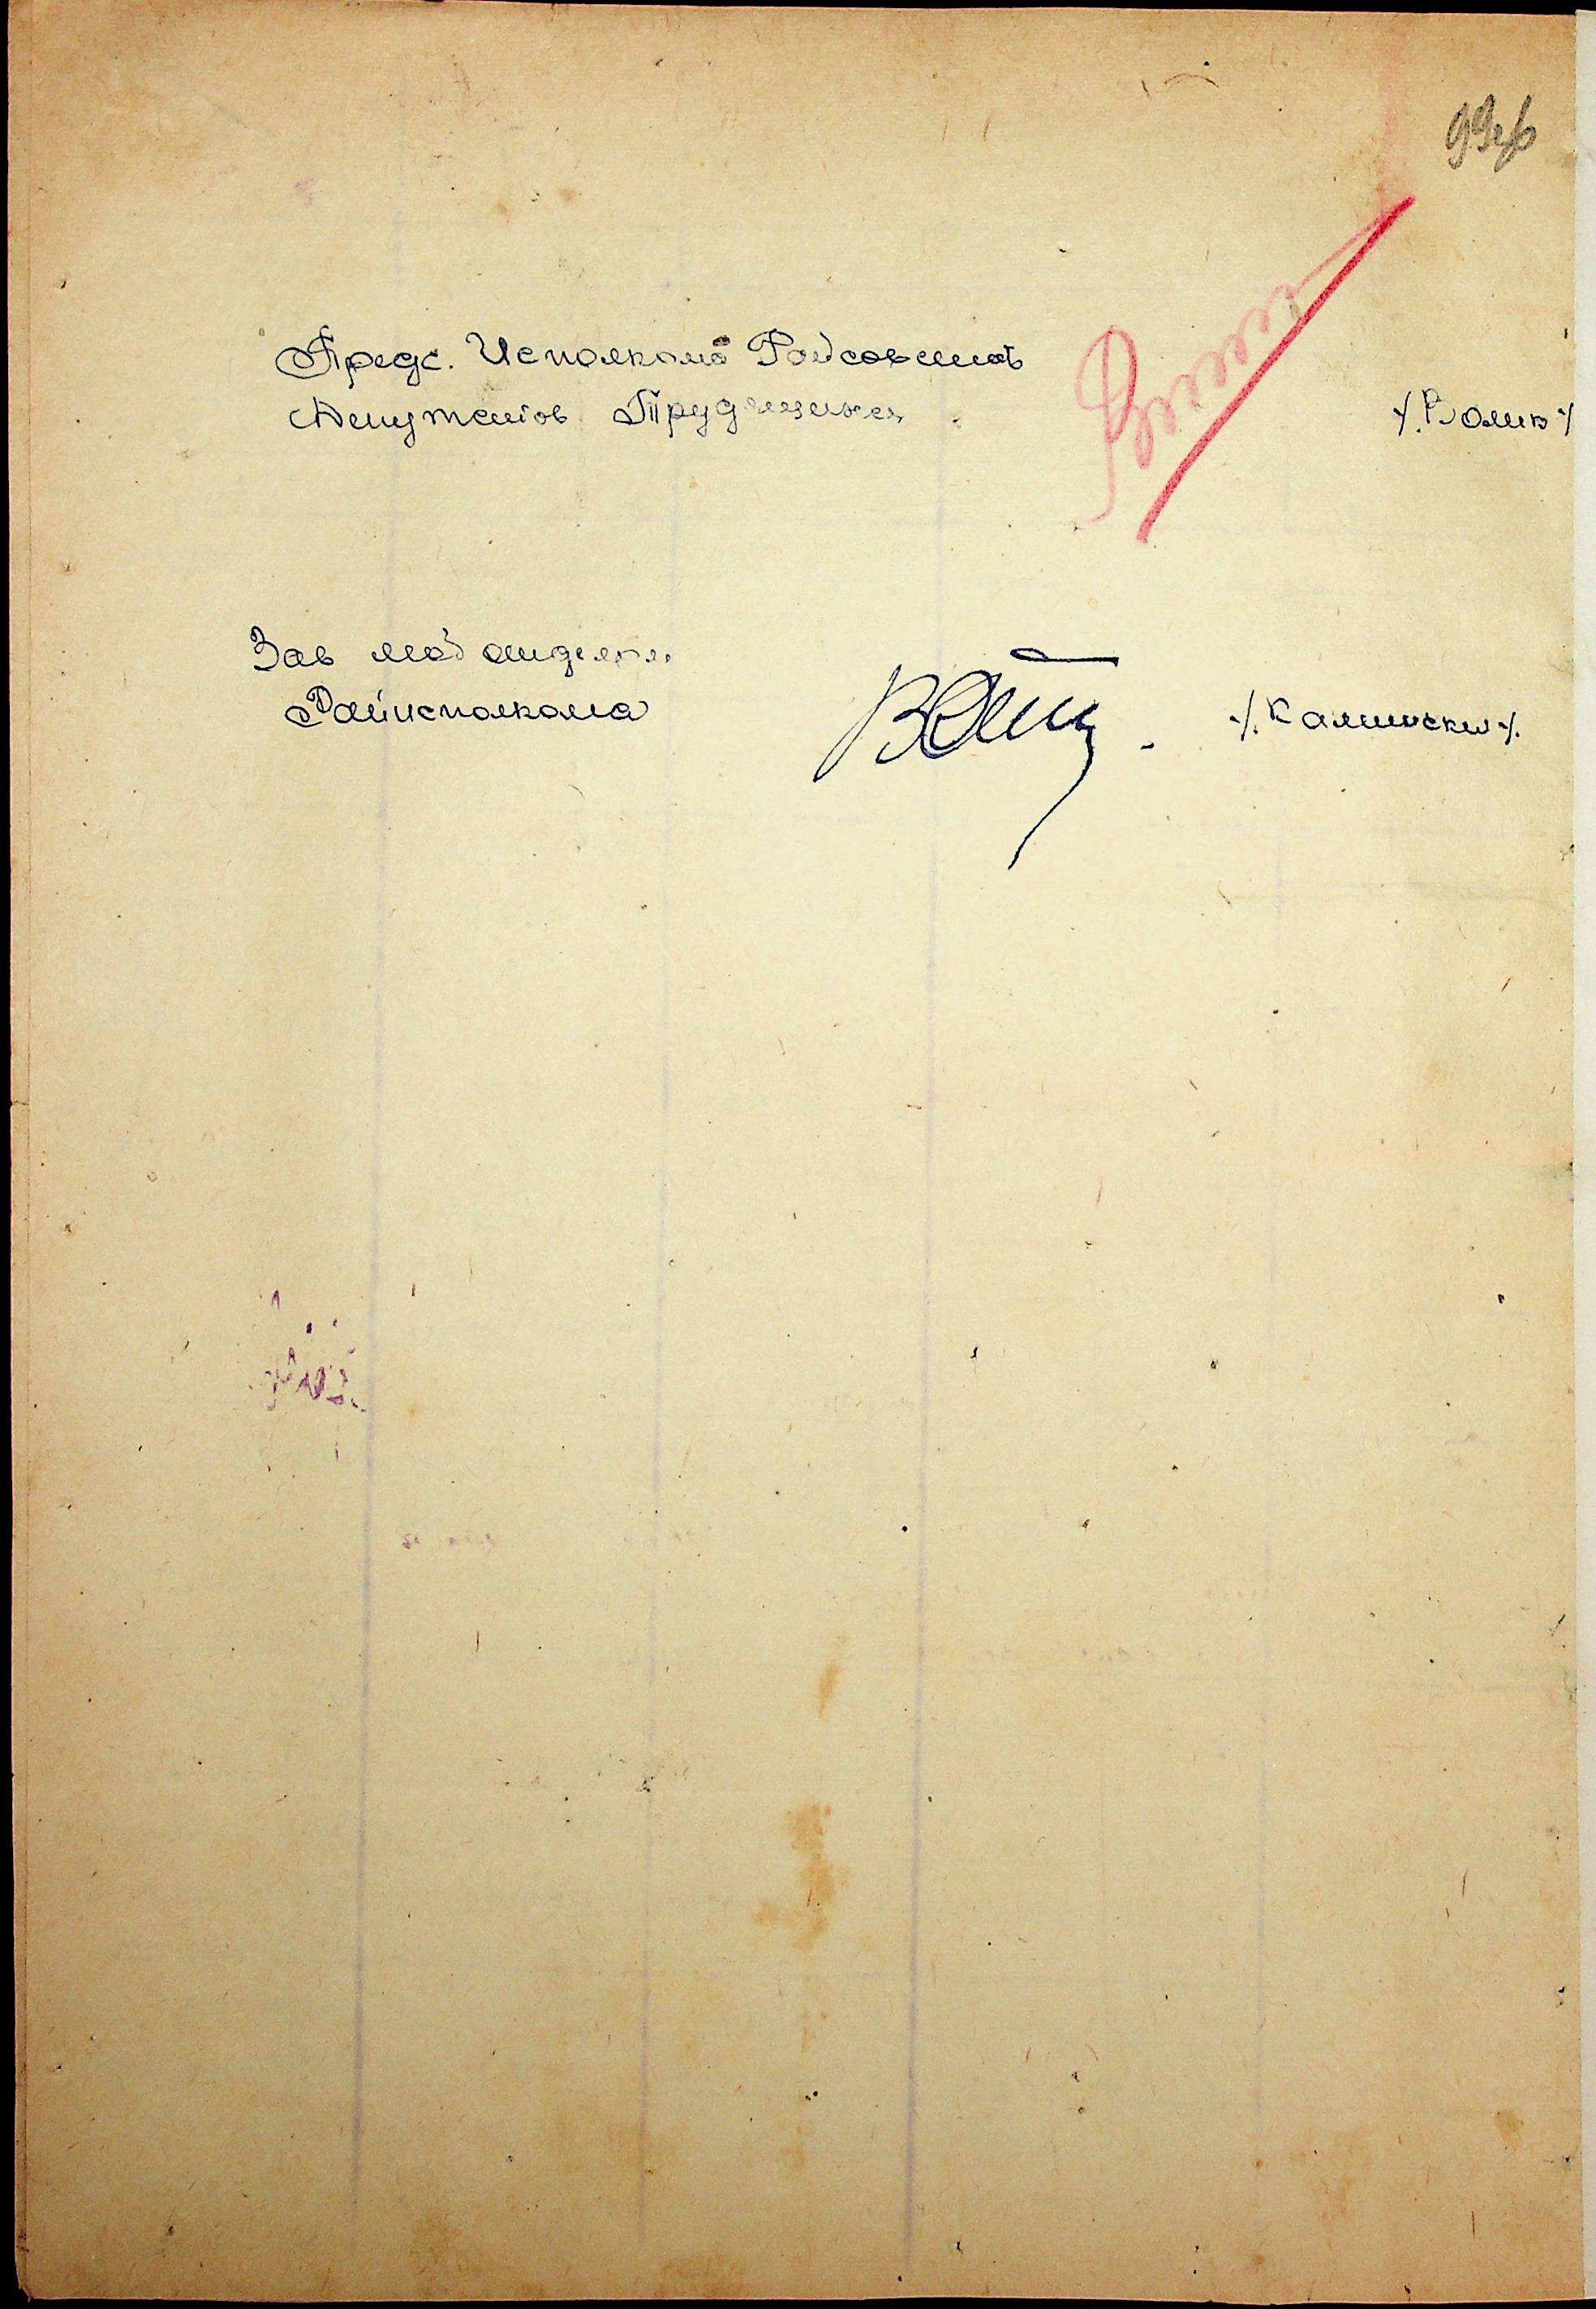 99об
Предс. Исполкома Райсовета
Депутатов Трудящихся
Зав моб отделом
Райисполкома
/. Калинский /.